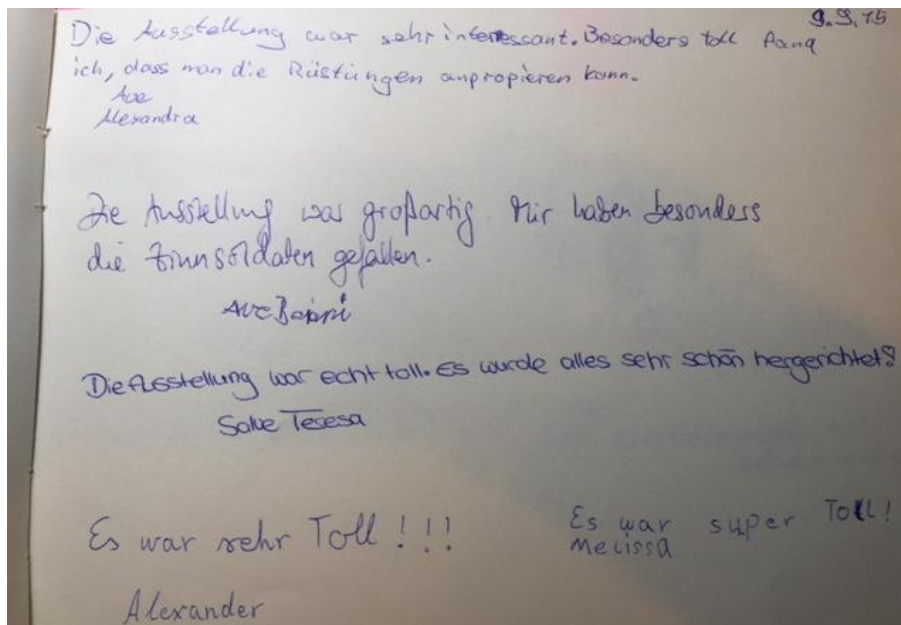 9.9.15
Die Ausstellung war sehr interessant. Besonders toll fang
ich, dass man die Rüstungen anpropieren konn.
Ave
Alexandra
Die Ausstellung war großartig. Mir haben besonders
die Zinnsoldaten gefallen.
Ave
Die Ausstellung war echt toll. Es wurde alles sehr schön hergerichtet!
Salve Teresa
Es war sehr Toll!!!
Es war super Toll!
Melissa
Alexander